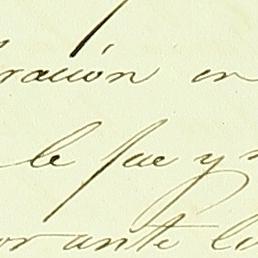 ración en
le fue y
orante la